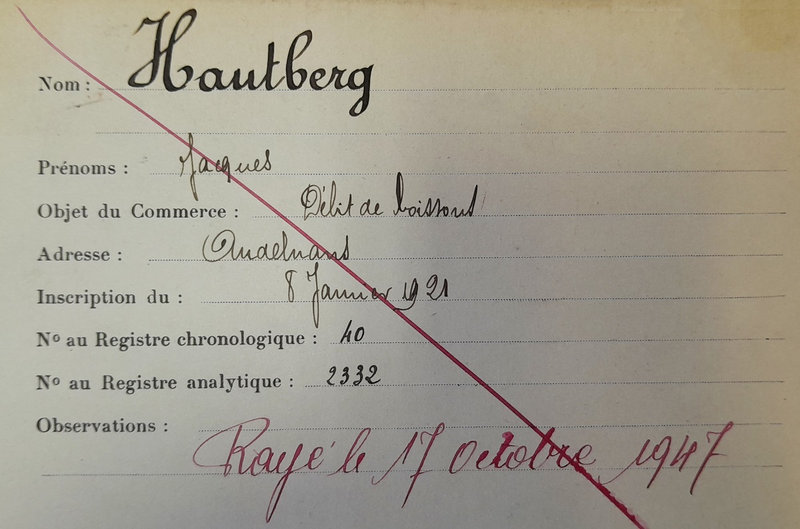 Nom : Hautberg
Prénoms : Jacques
Objet du Commerce : Débit de boissons
Adresse : Andelnans
Inscription du : 8 Janvier 1921
Nº au Registre chronologique : 40
Nº au Registre analytique : 2332
Observations :
Rayé le 17 octobre 1947